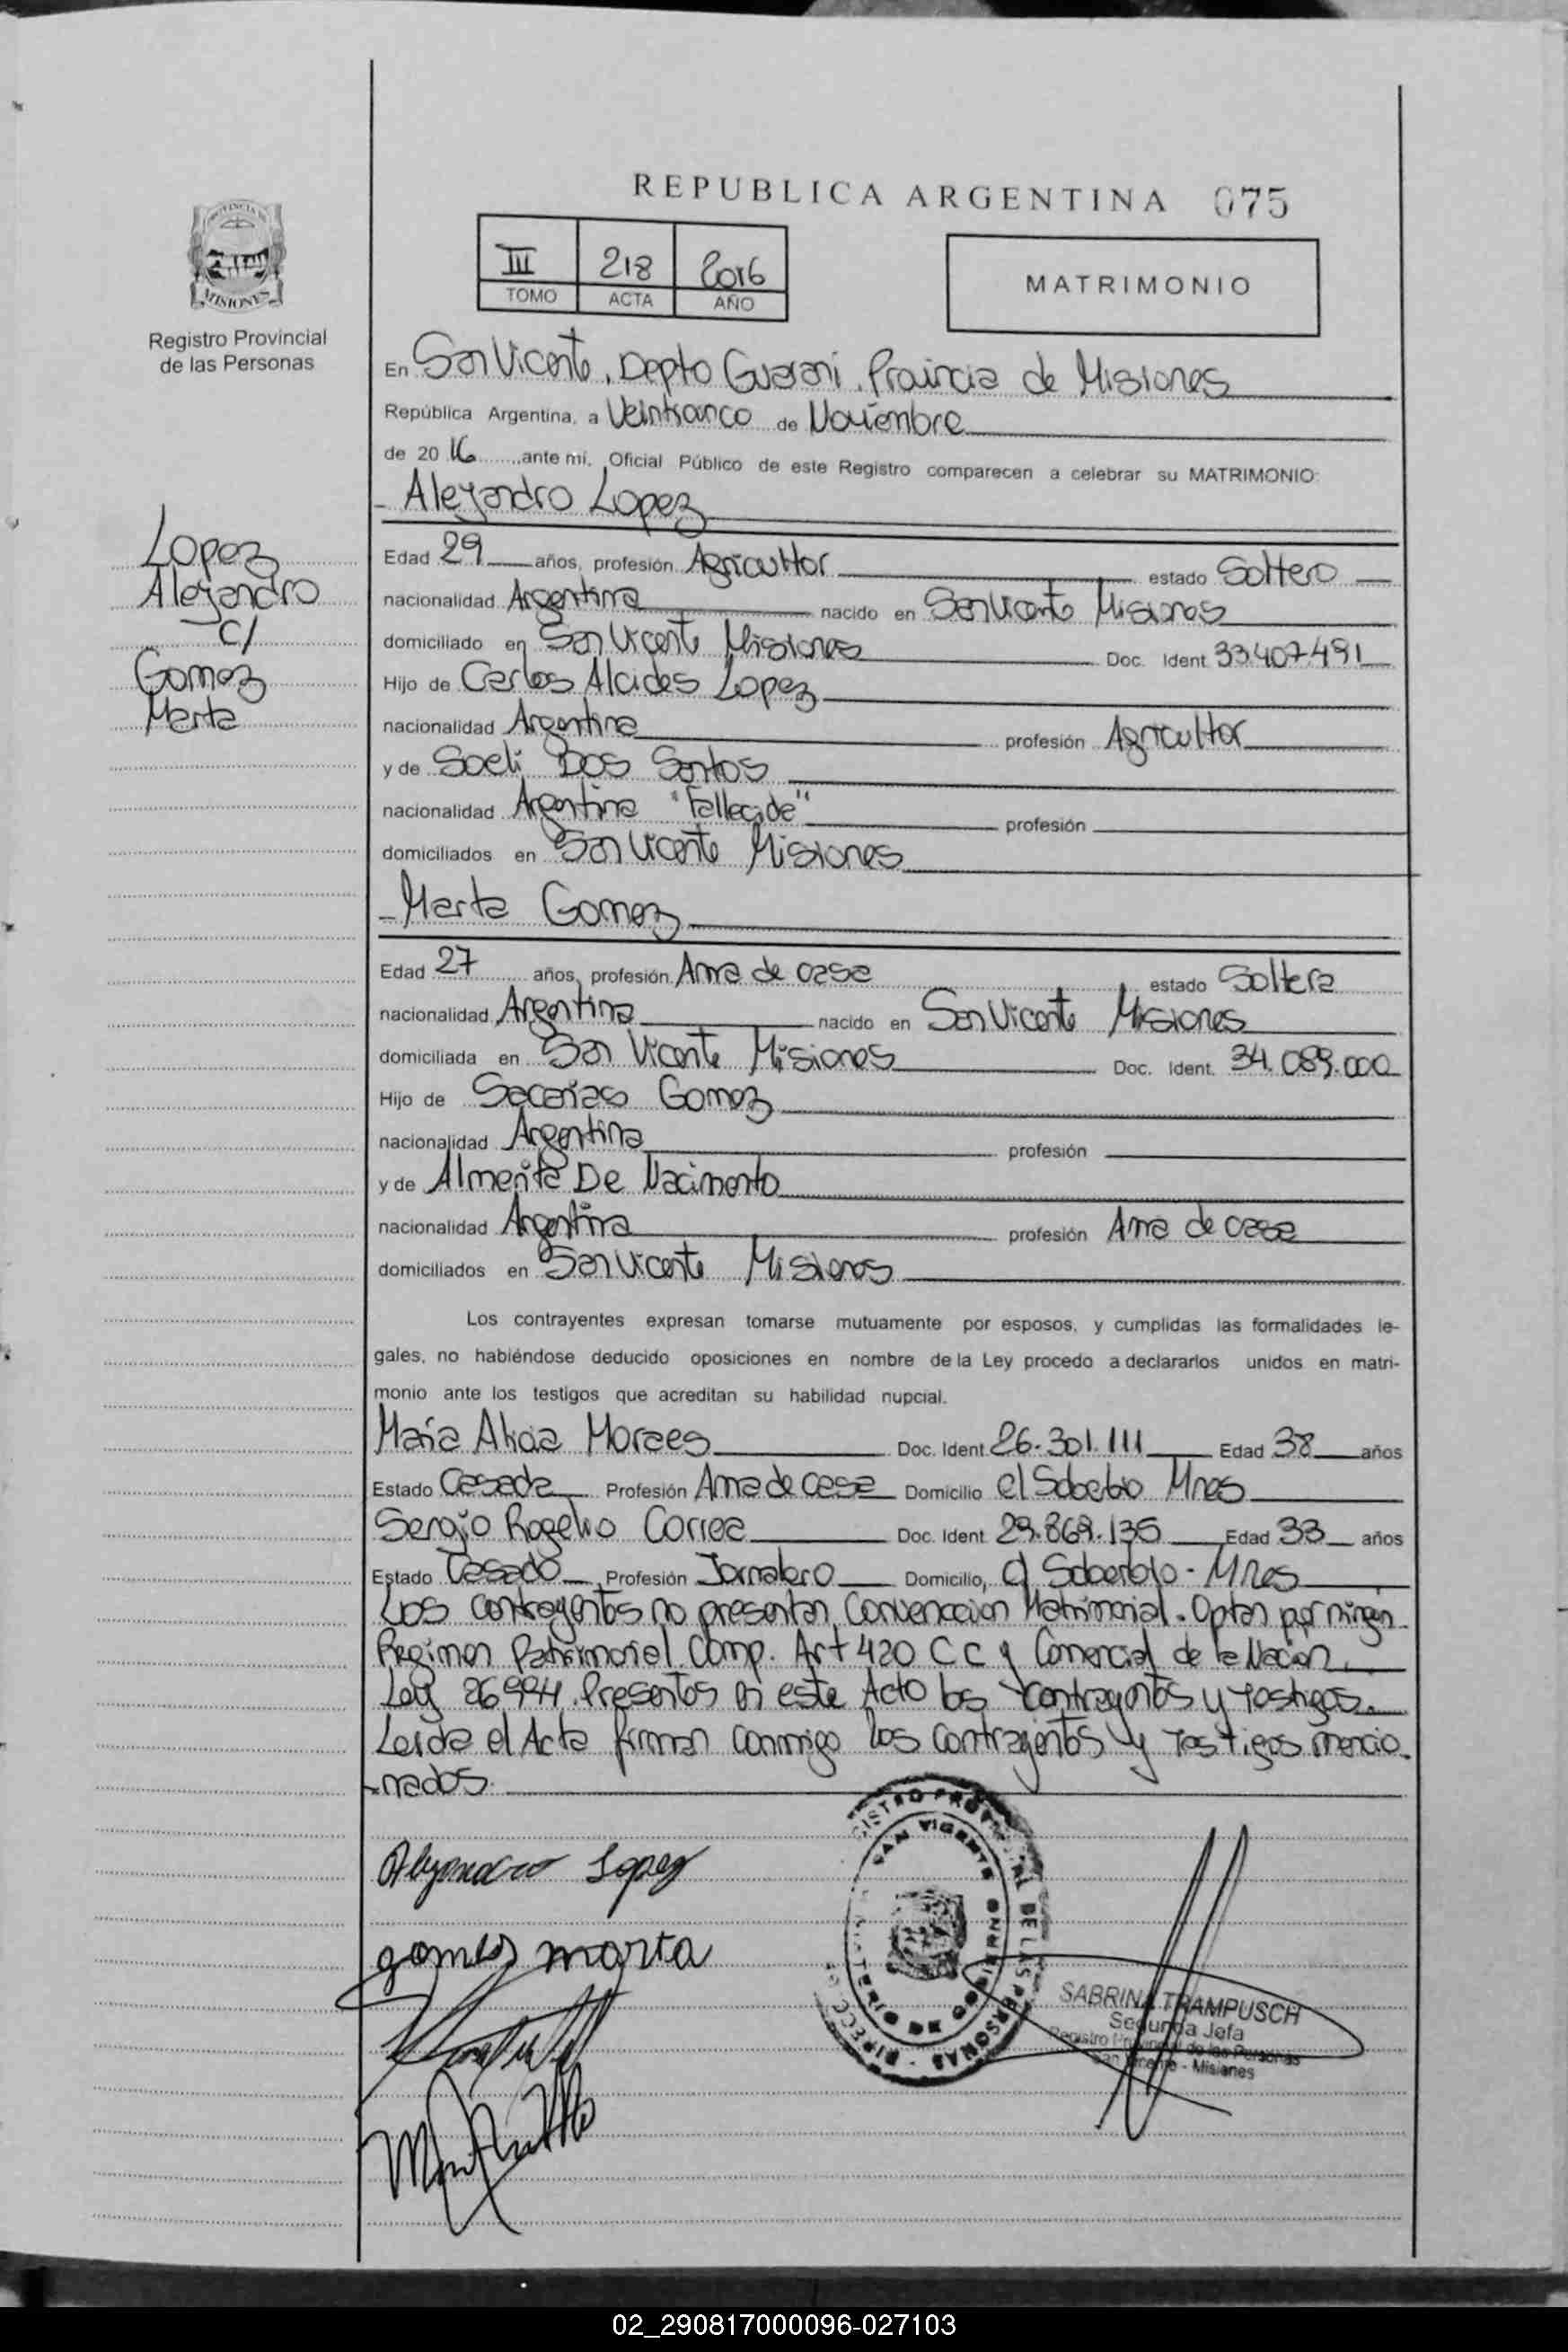 REPUBLICA ARGENTINA 075
III 218 2016
TOMO ACTA AÑO
MATRIMONIO
PROVINCIA DE
MISIONES
Registro Provincial
de las Personas
En San Vicente, Depto Guarani, Provincia de Misiones
República Argentina, a Veinticinco de Noviembre
de 20 16 ante mí, Oficial Público de este Registro comparecen a celebrar su MATRIMONIO:
- Alejandro Lopez
Lopez
Alejandro
C/
Gomez
Marta
Edad 29 años, profesión Agricultor estado Soltero
nacionalidad Argentina nacido en San Vicente Misiones
domiciliado en San Vicente Misiones Doc. Ident. 33.407.491
Hijo de Carlos Alcides Lopez
nacionalidad Argentina profesión Agricultor
y de Soeli Dos Santos
nacionalidad Argentina "Fallecida" profesión
domiciliados en San Vicente Misiones
- Marta Gomez
Edad 27 años, profesión Ama de casa estado Soltera
nacionalidad Argentina nacido en San Vicente Misiones
domiciliada en San Vicente Misiones Doc. Ident. 34.089.000
Hijo de Sacarias Gomez
nacionalidad Argentina profesión
y de Almerita De Nacimento
nacionalidad Argentina profesión Ama de casa
domiciliados en San Vicente Misiones
Los contrayentes expresan tomarse mutuamente por esposos, y cumplidas las formalidades le-
gales, no habiéndose deducido oposiciones en nombre de la Ley procedo a declararlos unidos en matri-
monio ante los testigos que acreditan su habilidad nupcial.
Maria Alicia Moraes Doc. Ident. 26.301.111 Edad 38 años
Estado Casada Profesión Ama de casa Domicilio el Soberbio Mnes
Sergio Rogelio Correa Doc. Ident. 29.869.135 Edad 33 años
Estado Casado Profesión Jornalero Domicilio, el Soberbio - Mnes
Los contrayentes no presentan Convencion Matrimonial. Optan por ningun
Regimen Patrimonial Comp. Art 420 C C y Comercial de la Nacion.
Ley 26994. Presentes en este Acto los contrayentes y Testigos.
Leida el Acta firman conmigo los contrayentes y Testigos mencio
-nados.
Alejandro Lopez
gomes marta
REGISTRO PROVINCIAL DE LAS PERSONAS
SAN VICENTE
SABRINA TRAMPUSCH
Segunda Jefa
Registro Provincial de las Personas
San Vicente - Misiones
02_290817000096-027103